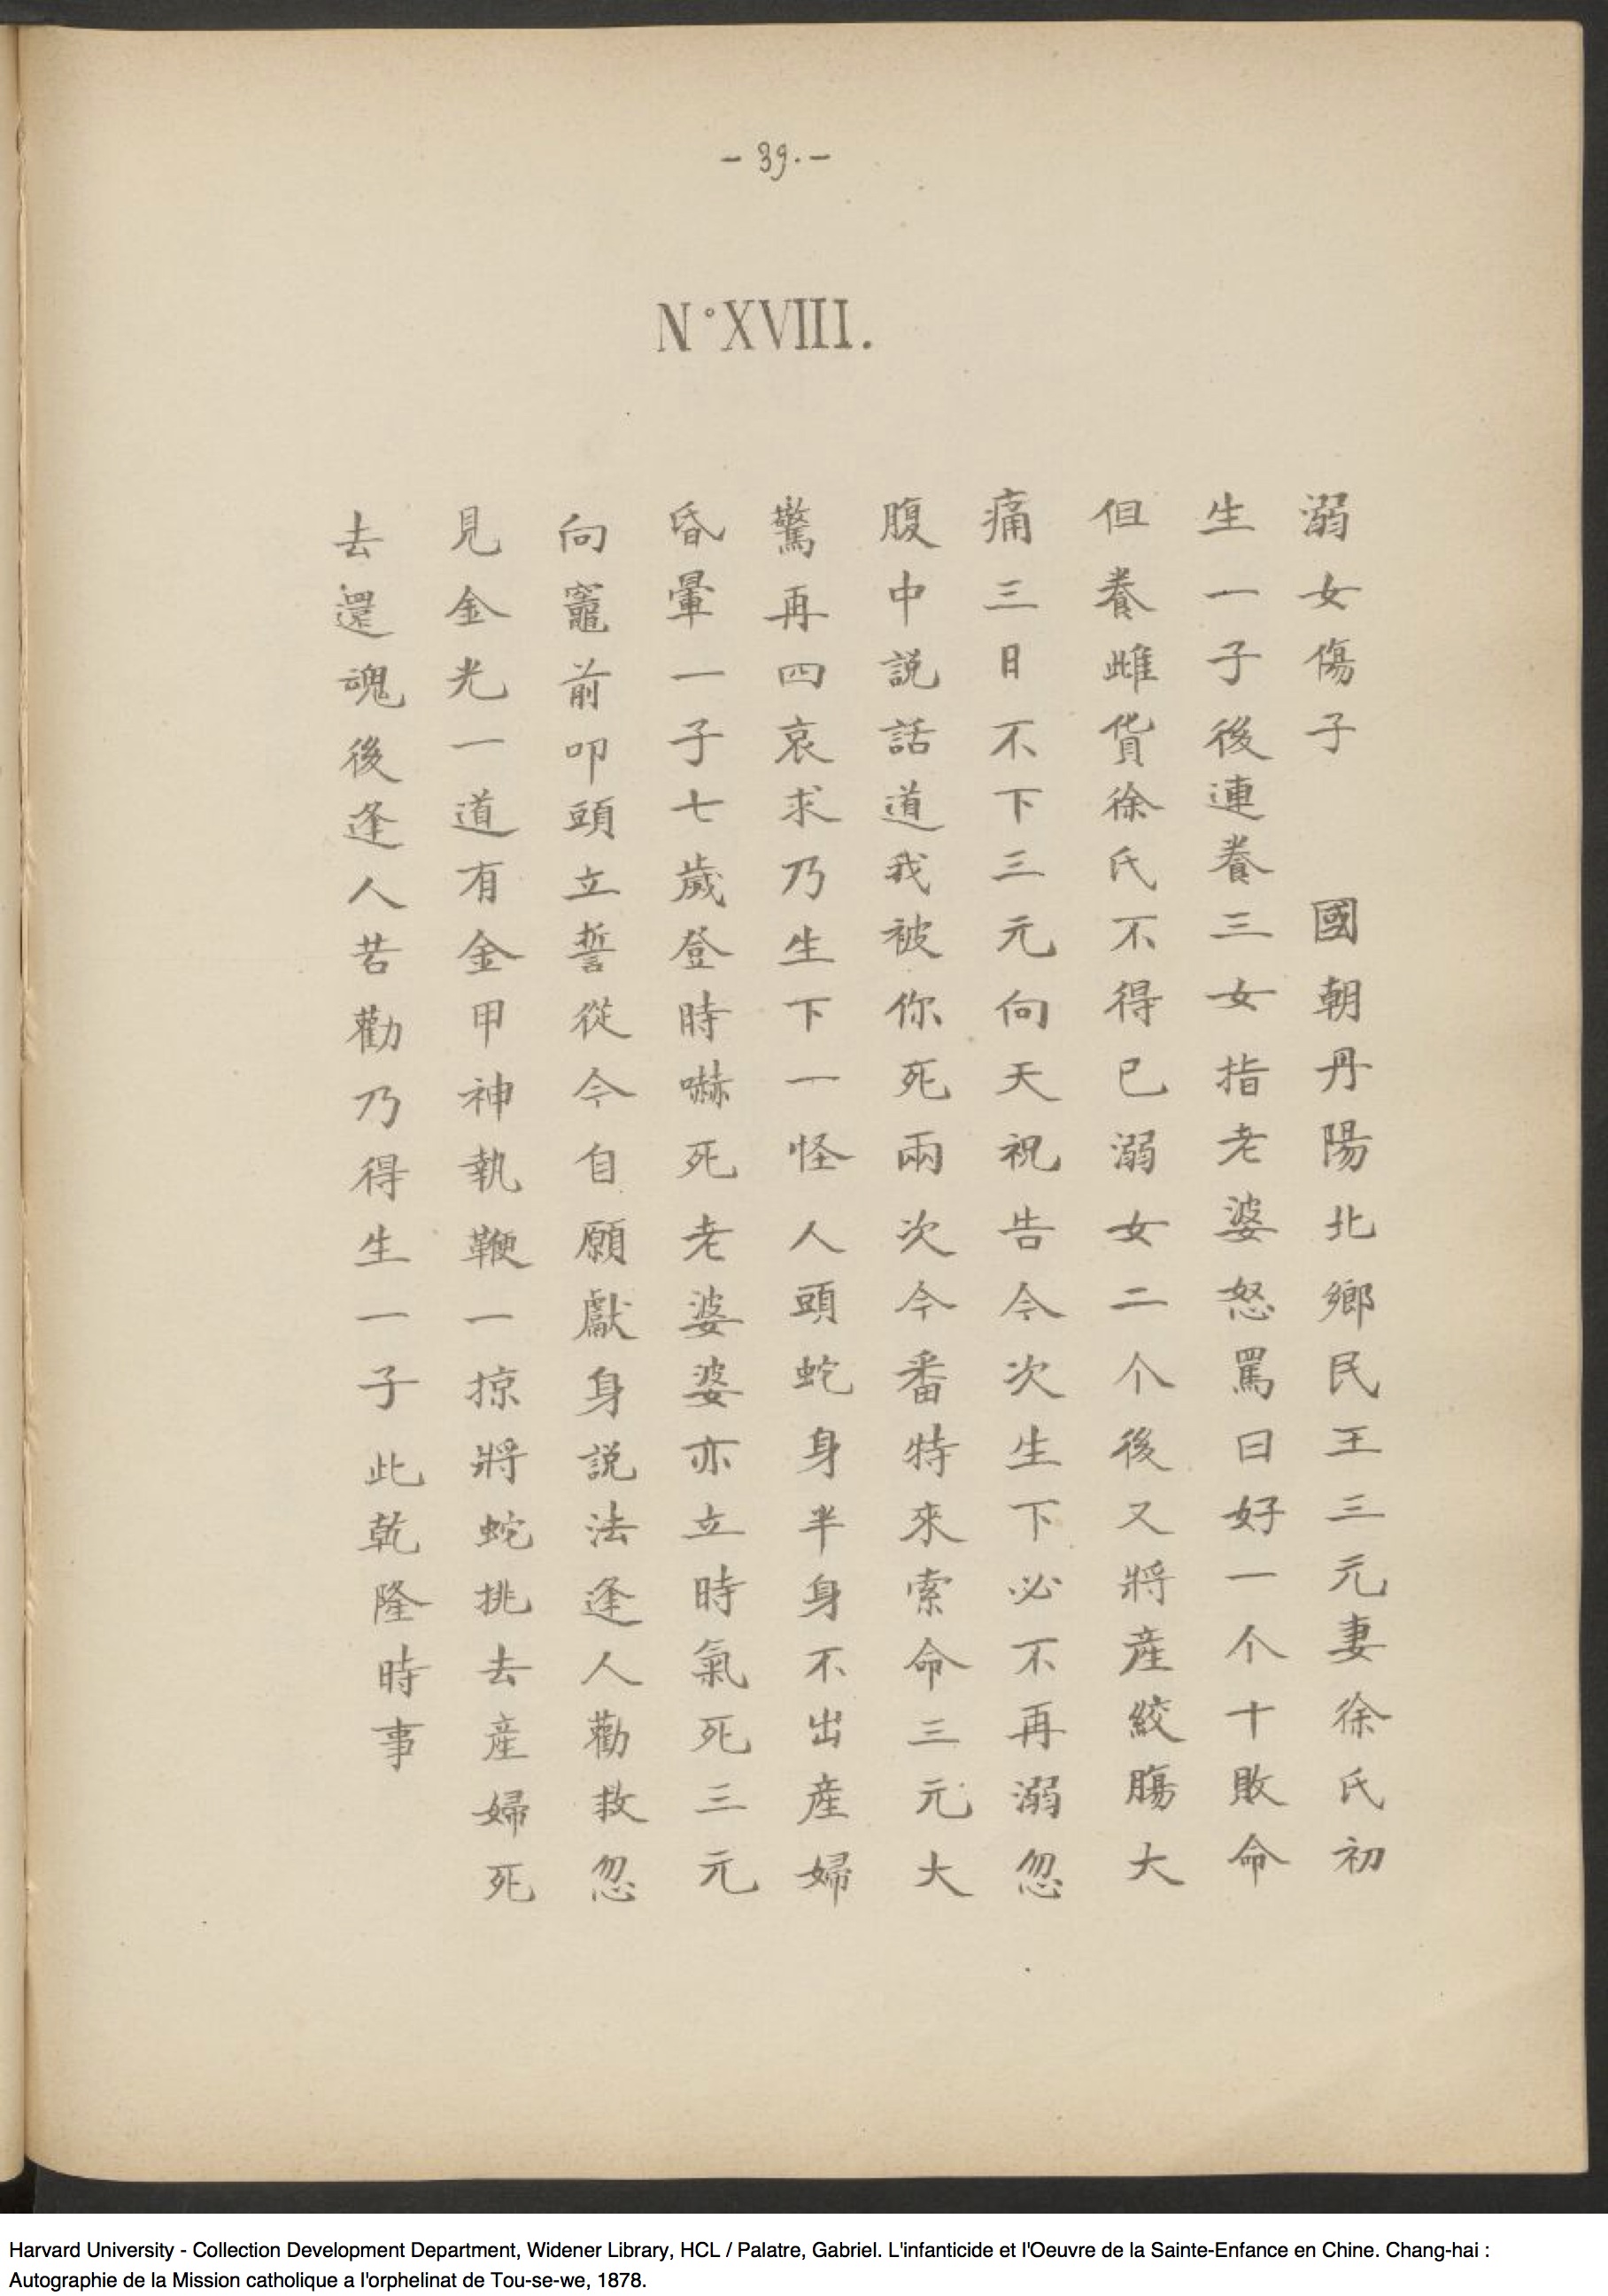 - 39. -
N° XVIII.
溺女傷子 國朝丹陽北鄉民王三元妻徐氏初
生一子後連養三女指老婆怒罵曰好一个十敗命
但養雌貨徐氏不得已溺女二个後又將產絞腸大
痛三日不下三元向天祝告今次生下必不再溺忽
腹中説話道我被你死兩次今番特來索命三元大
驚再四哀求乃生下一怪人頭蛇身半身不出產婦
昏暈一子七歲登時嚇死老婆婆亦立時氣死三元
向竈前叩頭立誓從今自願獻身説法逢人勸救忽
見金光一道有金甲神執鞭一掠將蛇挑去產婦死
去還魂後逢人苦勸乃得生一子此乾隆時事
Harvard University - Collection Development Department, Widener Library, HCL / Palatre, Gabriel. L'infanticide et l'Oeuvre de la Sainte-Enfance en Chine. Chang-hai :
Autographie de la Mission catholique a l'orphelinat de Tou-se-we, 1878.